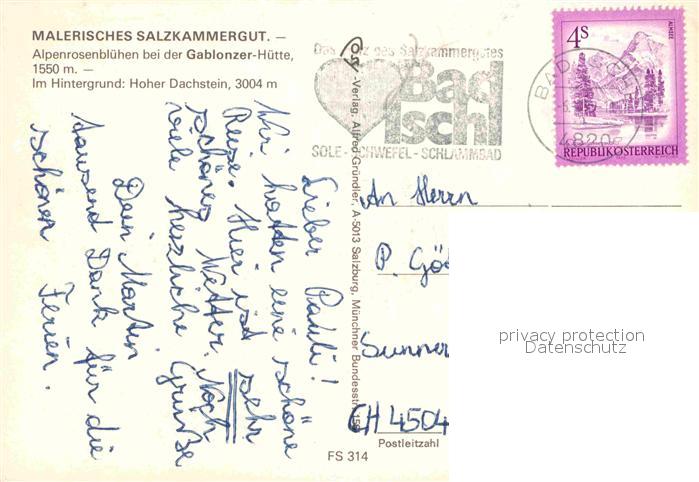 MALERISCHES SALZKAMMERGUT. —
Alpenrosenblühen bei der Gablonzer-Hütte,
1550 m. —
Im Hintergrund: Hoher Dachstein, 3004 m
Das Herz des Salzkammergutes
Bad
Ischl
SOLE - SCHWEFEL - SCHLAMMBAD
BAD ISCHL
4820
4S
ALMSEE
REPUBLIK ÖSTERREICH
-Verlag, Alfred Gründler, A-5013 Salzburg, Münchner Bundesstr. 156
Lieber Pauli!
Wir hatten eine schöne
Reise. Hier ist sehr
schönes Wetter. Noch
viele herzliche Grüsse
Dein Martin.
tausend Dank für die
schönen Ferien.
An Herrn
P. Gö
Sunner
CH 4504
Postleitzahl
FS 314
privacy protection
Datenschutz